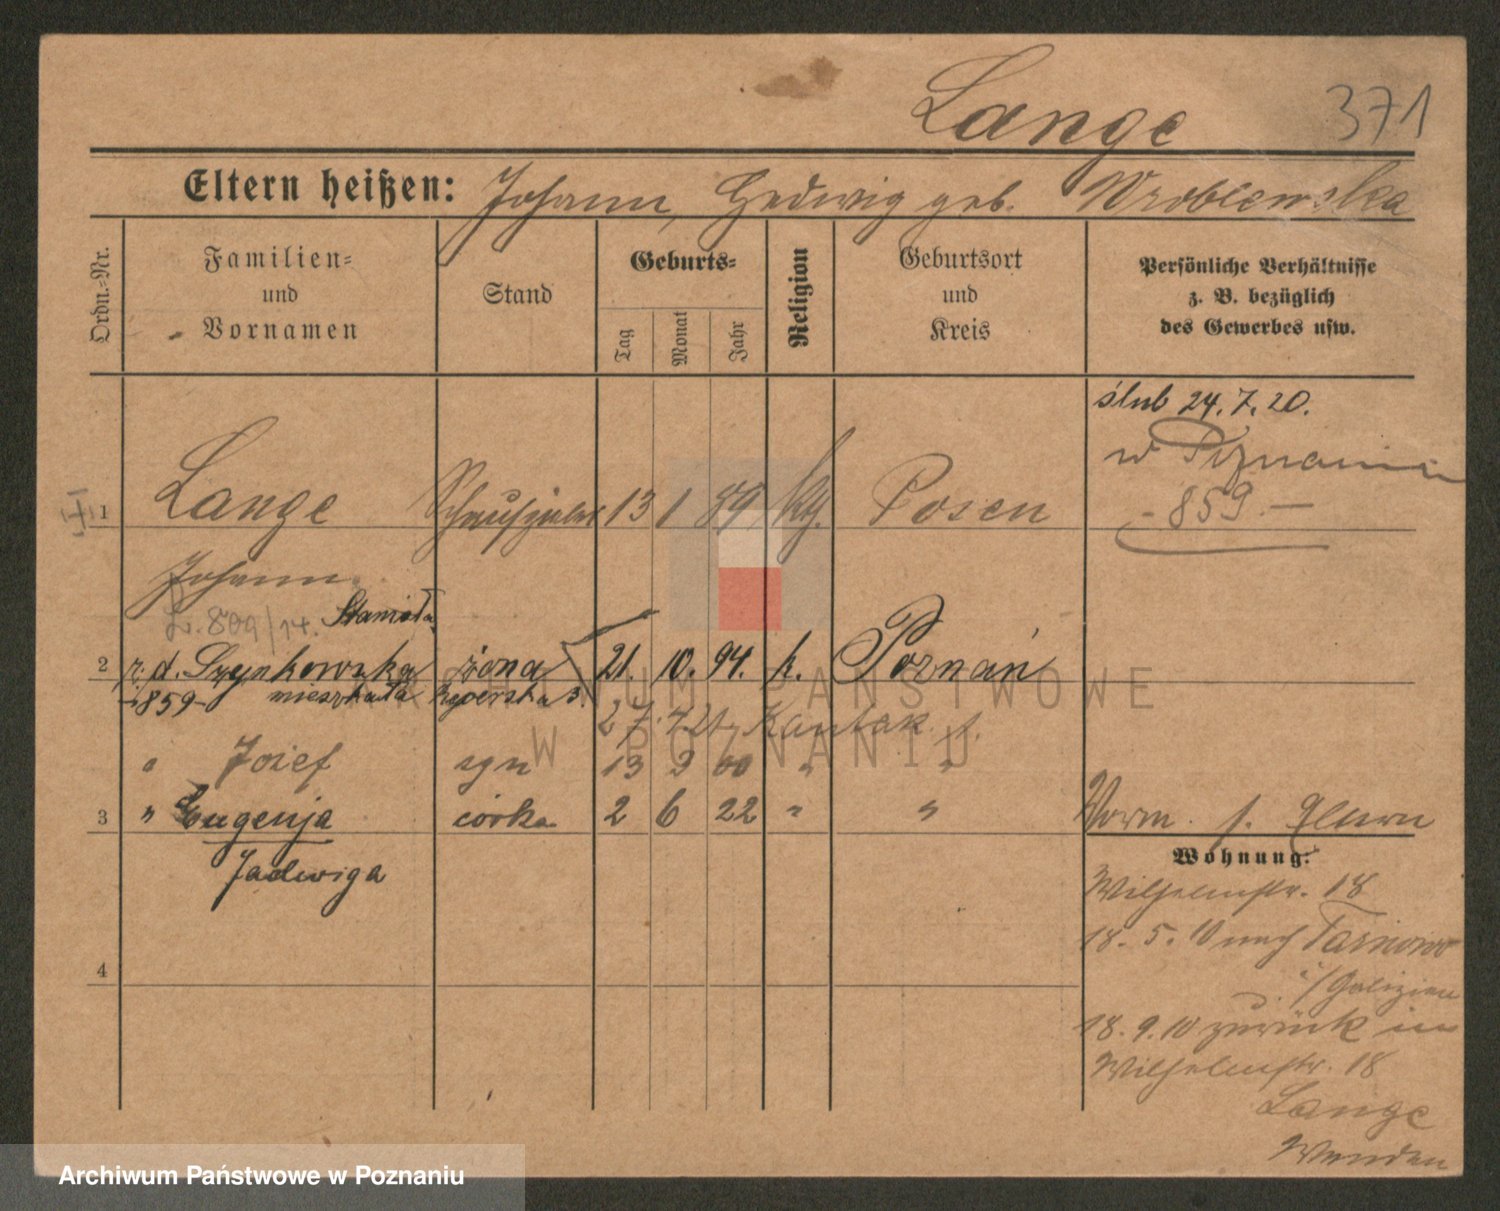 Lange 371
Eltern heißen: Johann, Hedwig geb. Wroblewska
Ordn.-Nr.
Familien-
und
Vornamen
Stand
Geburts-
Tag
Monat
Jahr
Religion
Geburtsort
und
Kreis
Persönliche Verhältnisse
z. B. bezüglich
des Gewerbes usw.
ślub 24.7.20.
w Poznaniu
- 859.-
1 Lange 13 1 89 kth. Posen
Johann
L. 809/14. Stanisła
2 z. d. żona 21. 10. 94. k. Poznań
-859- mieszkała
27. 7. 21
" Józef syn 13 3 00 " "
3 " Eugenja córka 2 6 22 " "
Jadwiga
4
Vorm. s.
Wohnung:
Wilhelmstr. 18
18. 5. 10 nach Tarnowo
i/Galizien
18. 9. 10 zurück in
Wilhelmstr. 18
Lange
ARCHIWUM PAŃSTWOWE
W POZNANIU
Archiwum Państwowe w Poznaniu